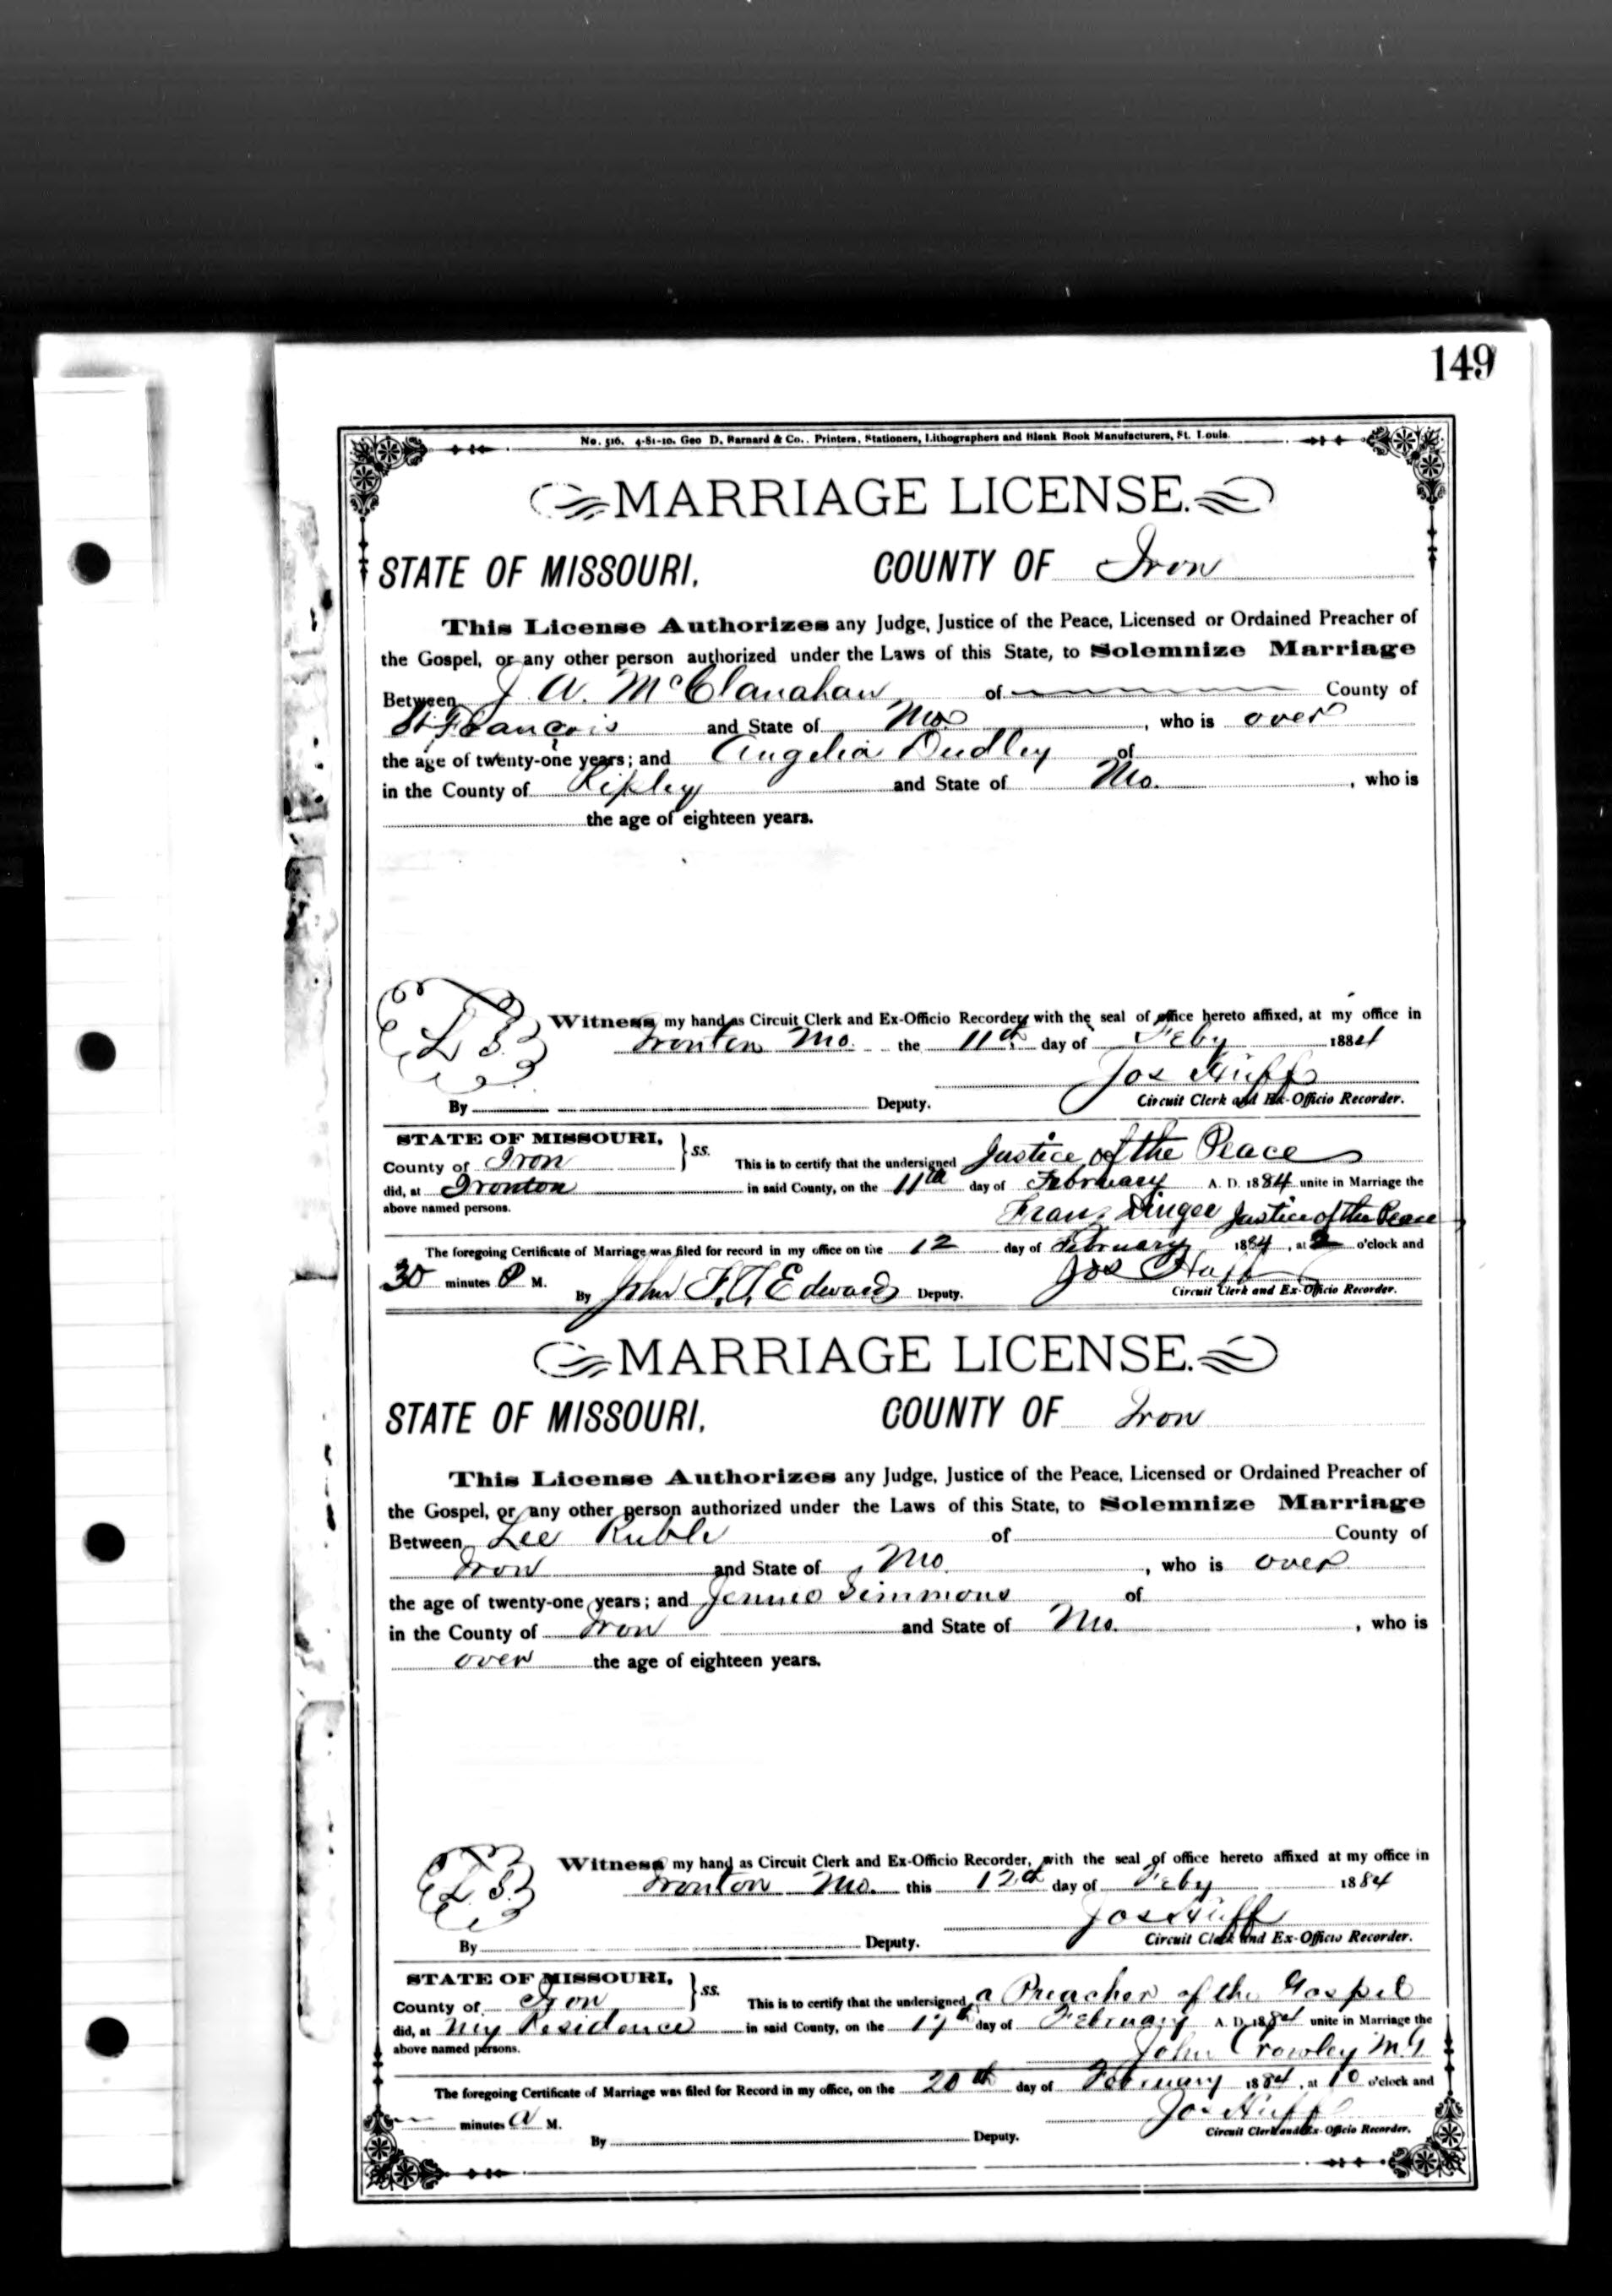 149
No. 516. 4-81-10. Geo D. Barnard & Co., Printers, Stationers, Lithographers and Blank Book Manufacturers, St. Louis.
MARRIAGE LICENSE.
STATE OF MISSOURI, COUNTY OF Iron
This License Authorizes any Judge, Justice of the Peace, Licensed or Ordained Preacher of
the Gospel, or any other person authorized under the Laws of this State, to Solemnize Marriage
Between J. A. McClanahan of County of
St Francois and State of Mo , who is over
the age of twenty-one years; and Angelia Dudley of
in the County of Ripley and State of Mo. , who is
the age of eighteen years.
L S.
Witness my hand as Circuit Clerk and Ex-Officio Recorder, with the seal of office hereto affixed, at my office in
Ironton Mo. the 11th day of Feby 1884
Jos Huff
By Deputy. Circuit Clerk and Ex-Officio Recorder.
STATE OF MISSOURI, } ss.
County of Iron This is to certify that the undersigned Justice of the Peace
did, at Ironton in said County, on the 11th day of February A. D. 1884 unite in Marriage the
above named persons. Franz Dinger Justice of the Peace
The foregoing Certificate of Marriage was filed for record in my office on the 12 day of February 1884, at 2 o'clock and
30 minutes P M. Jos Huff
By John F. T. Edwards Deputy. Circuit Clerk and Ex-Officio Recorder.
MARRIAGE LICENSE.
STATE OF MISSOURI, COUNTY OF Iron
This License Authorizes any Judge, Justice of the Peace, Licensed or Ordained Preacher of
the Gospel, or any other person authorized under the Laws of this State, to Solemnize Marriage
Between Lee Ruble of County of
Iron and State of Mo. , who is over
the age of twenty-one years; and Jennie Simmons of
in the County of Iron and State of Mo. , who is
over the age of eighteen years.
L. S.
Witness my hand as Circuit Clerk and Ex-Officio Recorder, with the seal of office hereto affixed at my office in
Ironton Mo. this 12th day of Feby 1884
Jos Huff
By Deputy. Circuit Clerk and Ex-Officio Recorder.
STATE OF MISSOURI, } ss.
County of Iron This is to certify that the undersigned a Preacher of the Gospel
did, at my Residence in said County, on the 17th day of February A. D. 1884 unite in Marriage the
above named persons. John Crowley M.G
The foregoing Certificate of Marriage was filed for Record in my office, on the 20th day of February 1884, at 10 o'clock and
minutes A M. Jos Huff
By Deputy. Circuit Clerk and Ex-Officio Recorder.